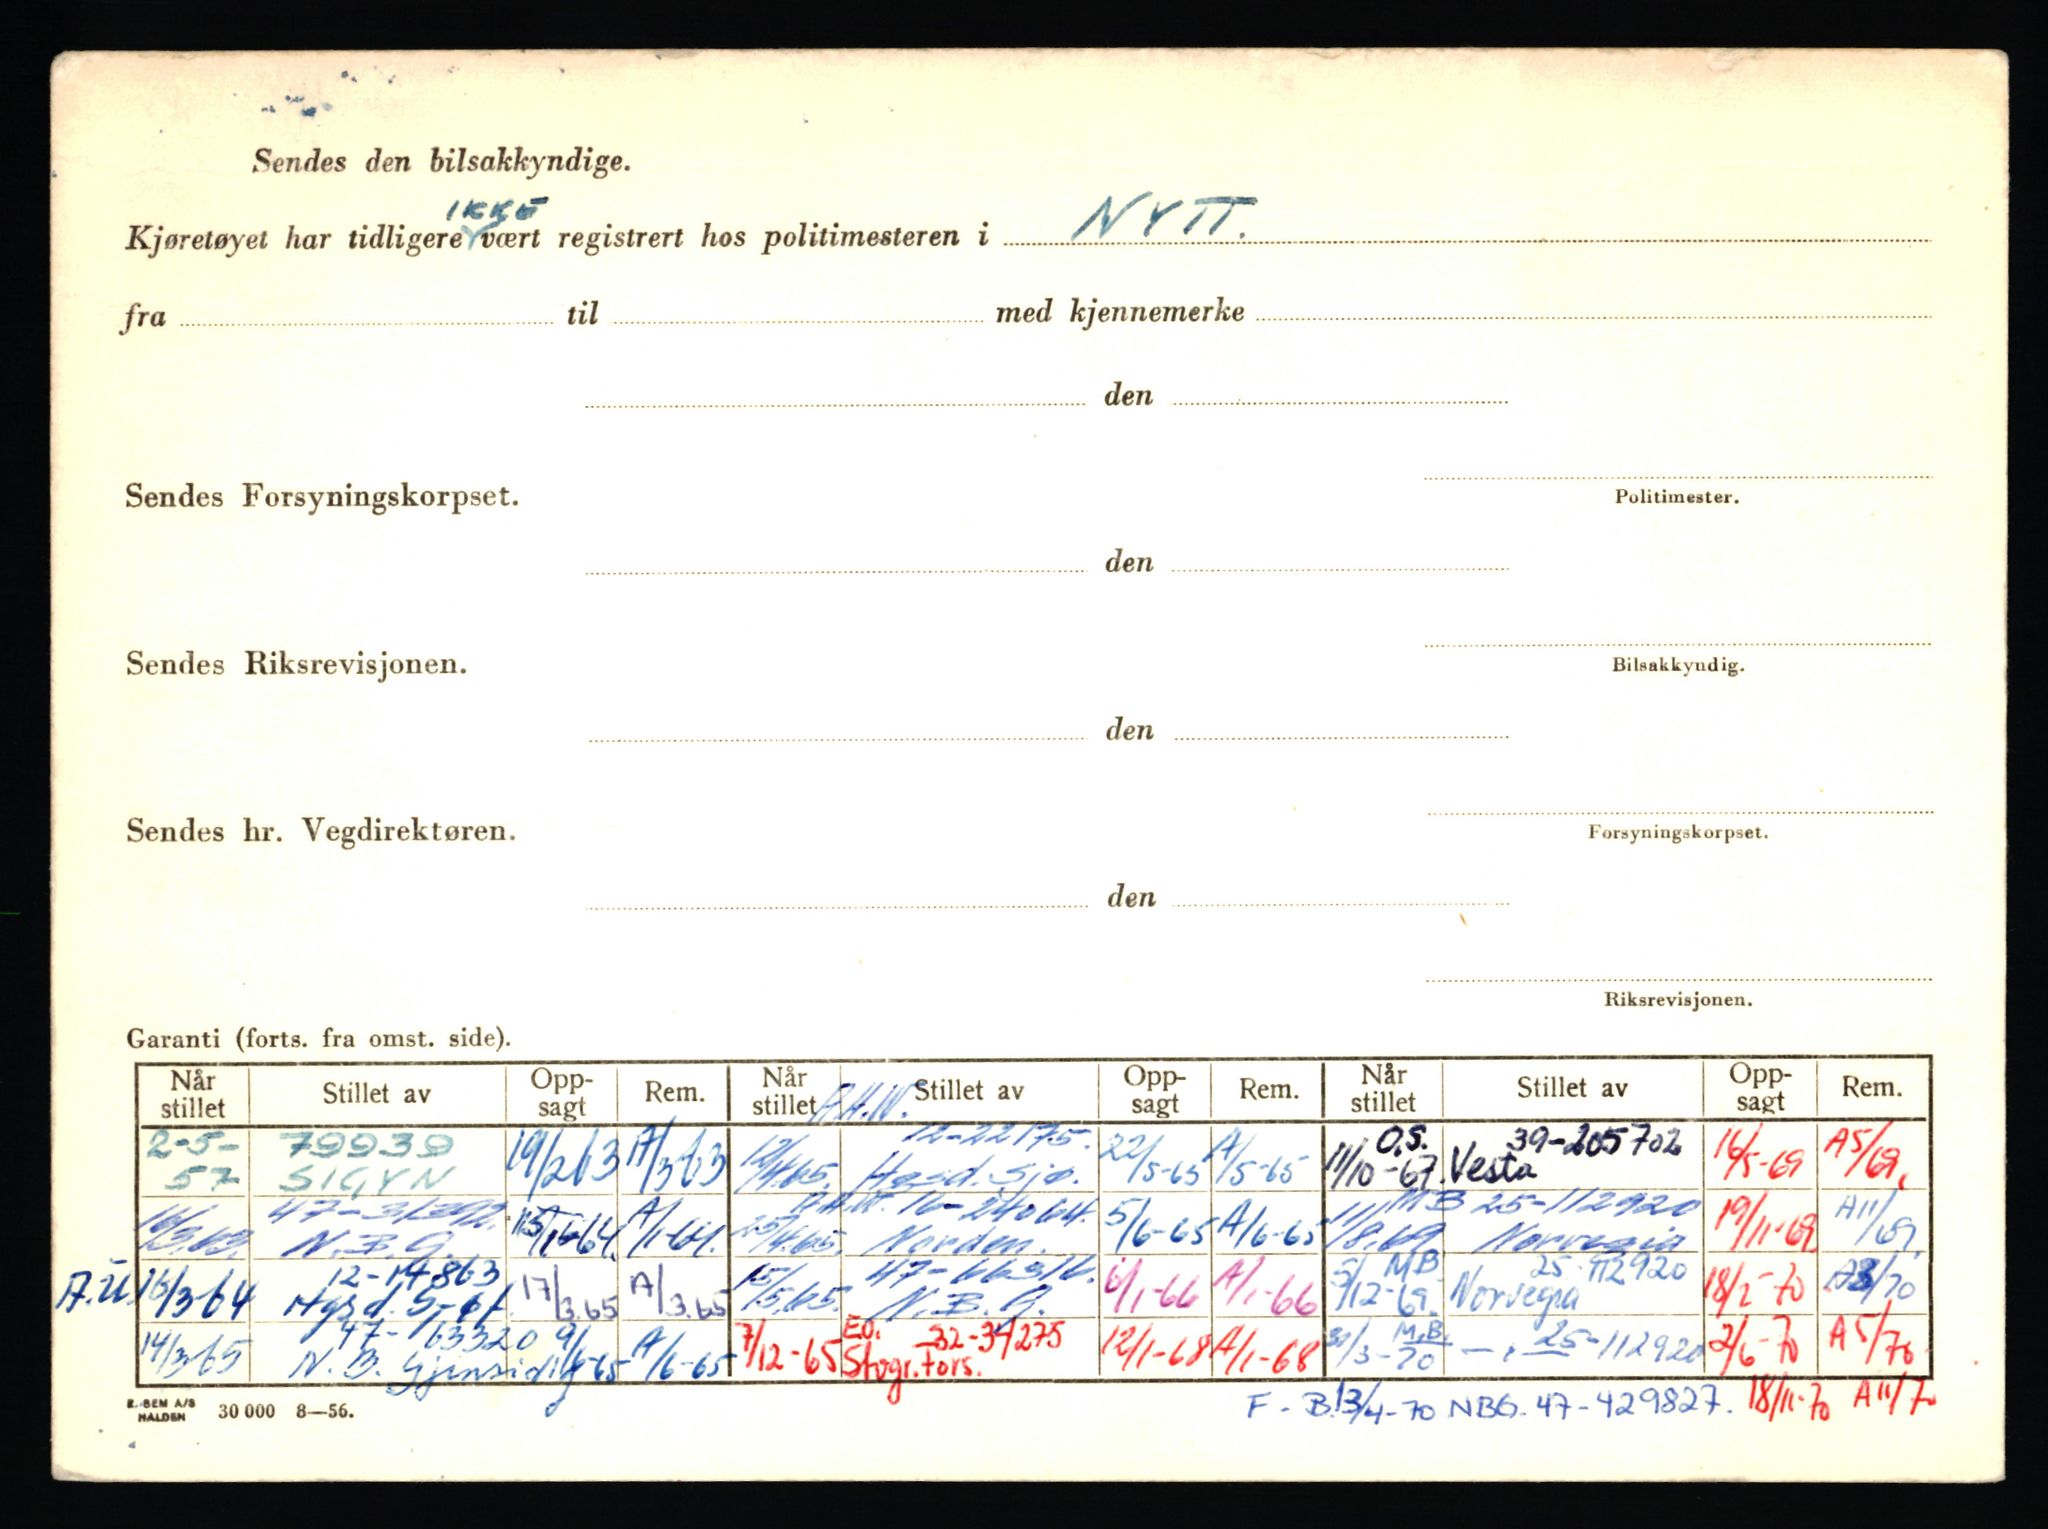 Sendes den bilsakkyndige.
IKKE
Kjøretøyet har tidligere vært registrert hos politimesteren i NYTT.
fra til med kjennemerke
den
Sendes Forsyningskorpset.
Politimester.
den
Sendes Riksrevisjonen.
Bilsakkyndig.
den
Sendes hr. Vegdirektøren.
Forsyningskorpset.
den
Riksrevisjonen.
Garanti (forts. fra omst. side).
Når stillet Stillet av Opp-sagt Rem. Når stillet Stillet av Opp-sagt Rem. Når stillet Stillet av Opp-sagt Rem.
2-5-57 79939 SIGYN 19/2 63 A/3 63
N.B.G. A/1-64.
A.U. 16/3 64 12-14863 17/3.65 A/3.65
14/3 65 47-63320 N. B. Gjensidig 9/6-65 A/6-65
12-22175. Hagd. Sjø. 22/5-65 A/5-65
16-24064. Norden. 5/6-65 A/6-65
15/5.65. N.B.G. 6/1-66 A/1-66
7/12-65 E.O. 32-34275 Stvgr. Fors. 12/1-68 A/1-68
11/10-67. O.S. 39-205702 Vesta 16/5-69 A5/69.
11/8.69 MB 25-112920 Norvegia 19/11-69 A11/69.
5/12-69. MB 25-112920 Norvegia 18/2-70 A3/70
M.B. 25-112920 2/6-70 A5/70
F-B. 13/4-70 NBG. 47-429827. 18/11-70 A11/70
E. SEM A/S
HALDEN 30 000 8—56.